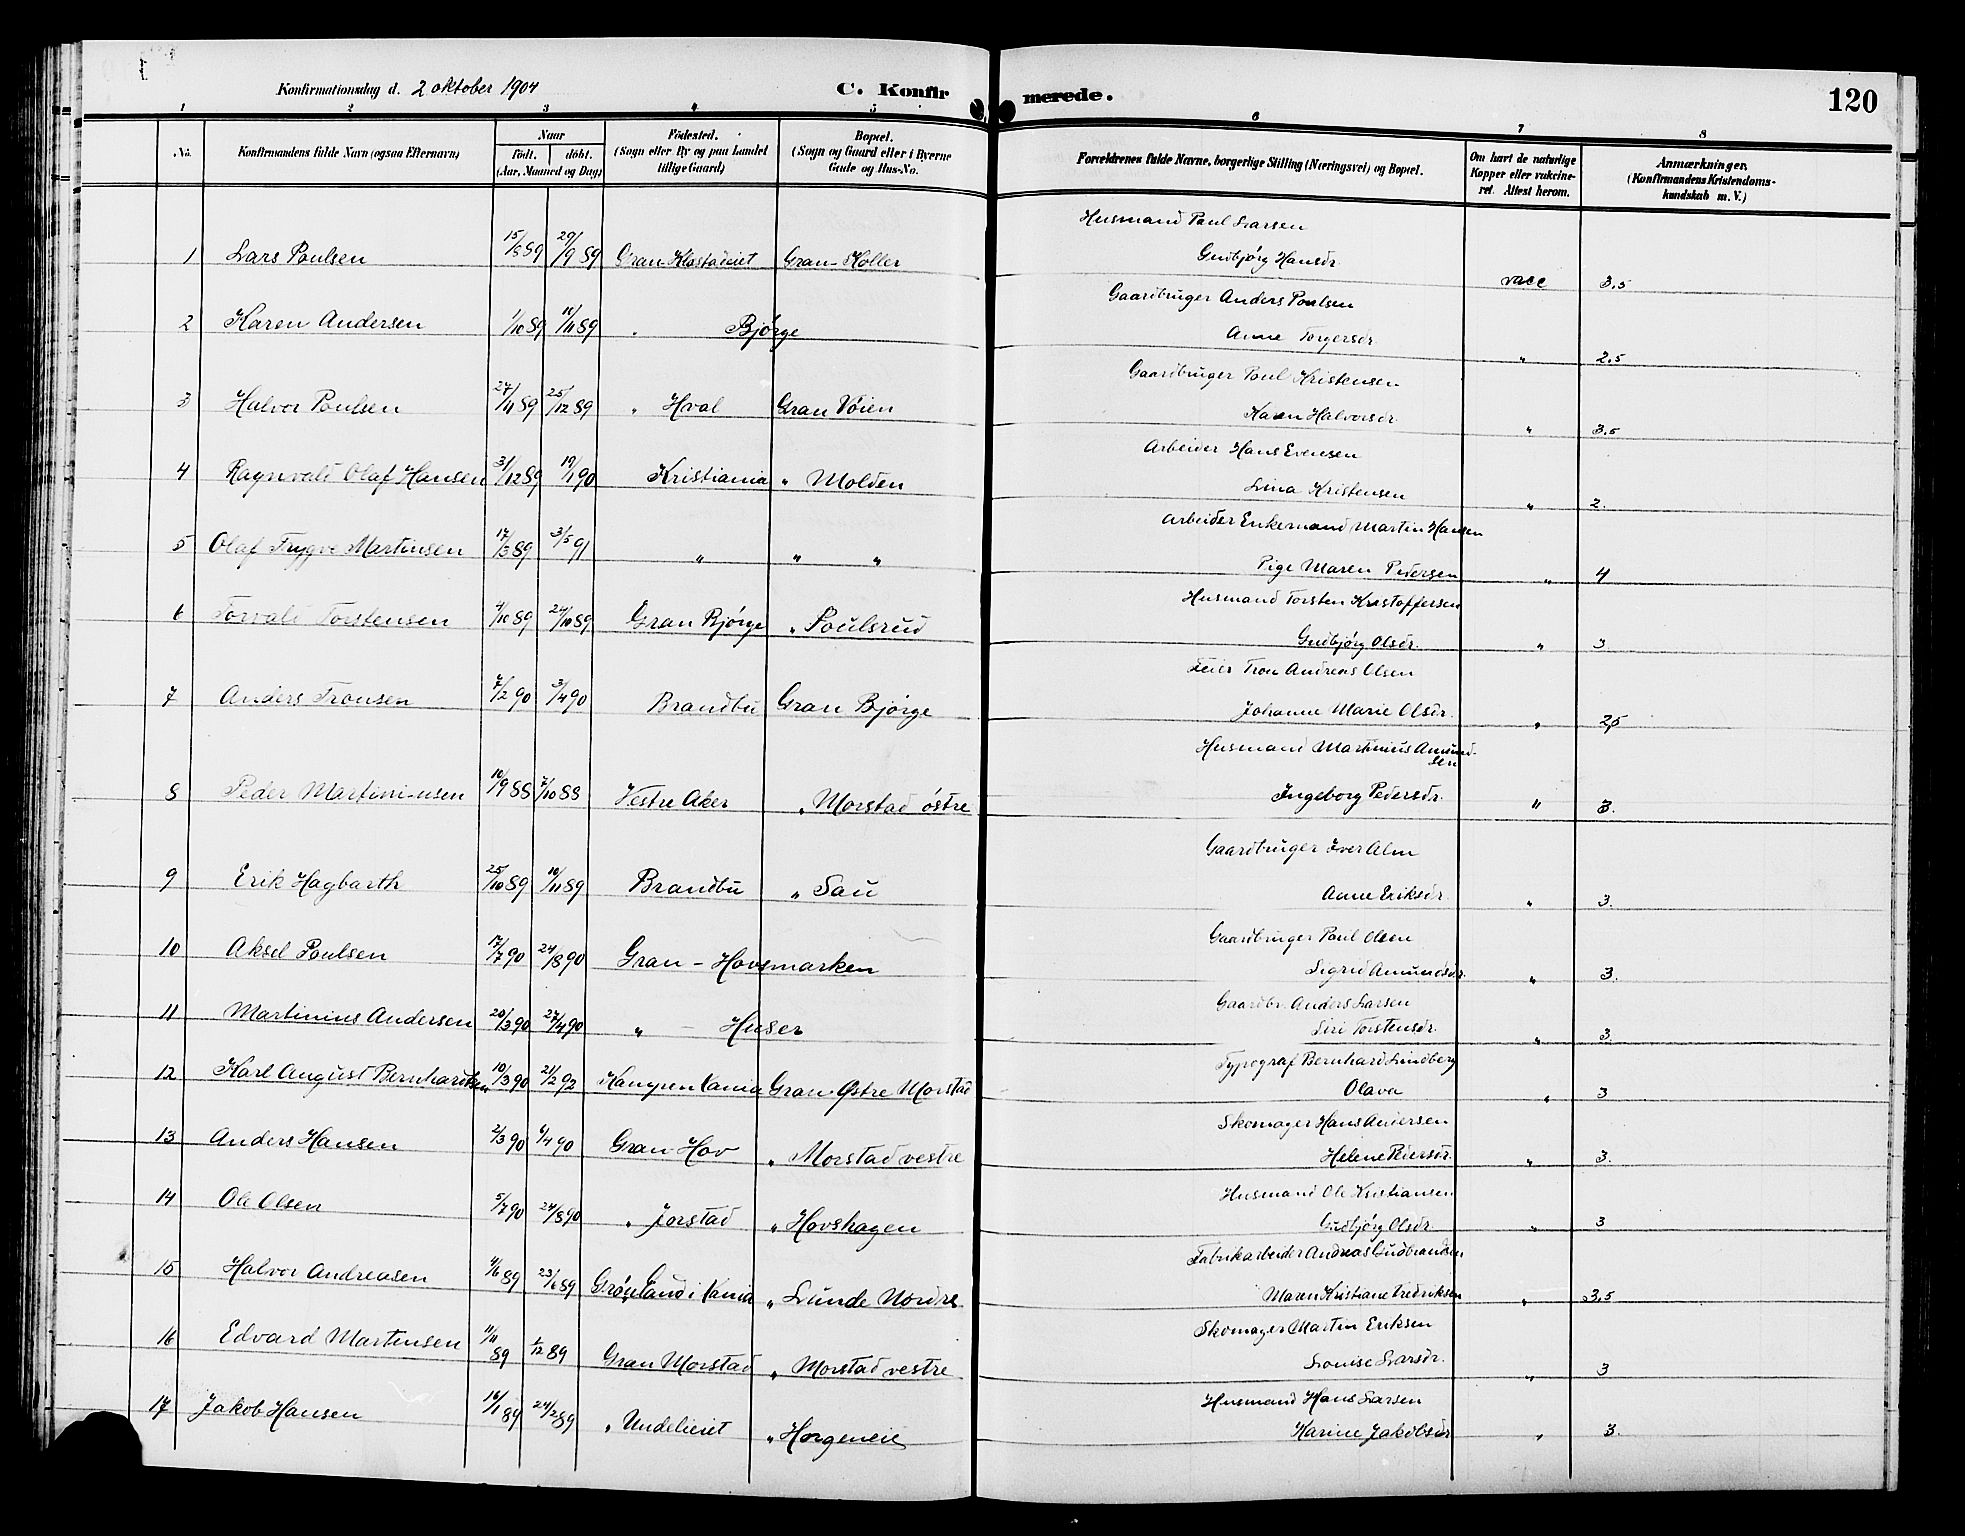 Konfirmationsdag d. 2 oktober 1904 C. Konfirmerede. 120
1 2 3 4 5 6 7 8
No. Konfirmandens fulde Navn (ogsaa Efternavn) Naar født. døbt. (Aar, Maaned og Dag) Fødested. (Sogn eller By og paa Landet tillige Gaard) Bopæl. (Sogn og Gaard eller i Byerne Gade og Hus-No. Forældrenes fulde Navne, borgerlige Stilling (Næringsvei) og Bopæl. Om havt de naturlige Kopper eller vakcineret. Attest herom. Anmærkninger. (Konfirmandens Kristendomskundskab m. V.)
Husmand Paul Larsen
1 Lars Poulsen 15/8 89 29/9 89 Gran-Klostadeiet Gran-Møller Gudbjörg Hansdr. vacc 3,5
Gaardbruger Anders Poulsen
2 Karen Andersen 1/10 89 10/11 89 " Bjørge Anne Torgersdr. " 2,5
Gaardbruger Poul Kristensen
3 Halvor Poulsen 27/11 89 25/12 89 " Hval Gran Vøien Karen Halvorsdr. " 3,5
Arbeider Hans Evensen
4 Ragnvald Olaf Hansen 31/12 89 19/1 90 Kristiania " Molden Lina Kristensen " 2.
Arbeider Enkemand Martin Hansen
5 Olaf Trygve Martinsen 17/3 89 3/5 91 " " " Pige Maren Pedersen " 4
Husmand Torsten Kristoffersen
6 Torvald Torstensen 4/10 89 24/10 89 Gran Bjørge " Poulsrud Gudbjørg Olsdr. " 3
Leier Tron Andreas Olsen
7 Anders Tronsen 7/2 90 3/4 90 Brandbu Gran Bjørge Johanne Marie Olsdr. " 2,5
Husmand Martinius Amundsen
8 Peder Martiniusen 10/9 88 7/10 88 Vestre Aker " Morstad østre Ingeborg Pedersdr. " 3.
Gaardbruger Iver Alm
9 Erik Hagbarth 25/10 89 10/11 89 Brandbu " Sau Anne Eriksdr. " 3.
Gaardbruger Paul Olsen
10 Aksel Poulsen 17/7 90 24/8 90 Gran - Hovsmarken Sigrid Amundsdr. " 3.
Gaardbr. Anders Larsen
11 Martinius Andersen 20/3 90 27/4 90 " - Huser Siri Torstensdr. " 3.
Typograf Bernhard Lindberg
12 Karl August Bernhardsen 10/3 90 21/2 92 Kampen Kania Gran Østre Morstad Olava " 3
Skomager Hans Andersen
13 Anders Hansen 2/3 90 6/4 90 Gran Hov " Morstad vestre Helene Pedersdr. " 3.
Husmand Ole Kristiansen
14 Ole Olsen 5/7 90 24/8 90 " Jorstad " Hovshagen Gudbjørg Olsdr. " 3
Fabrikarbeider Andreas Gudbrandsen
15 Halvor Andreasen 4/6 89 23/6 89 Grønland i Kania " Lunde Nordre Maren Kristiane Fredriksen " 3,5
Skomager Martin Eriksen
16 Edvard Martinsen 11/11 89 1/12 89 Gran Morstad " Morstad vestre Louise Larsdr. " 3
Husmand Hans Larsen
17 Jakob Hansen 16/1 89 24/2 89 " Undelieiet " Horgeneie Karine Jakobsdr " 3.